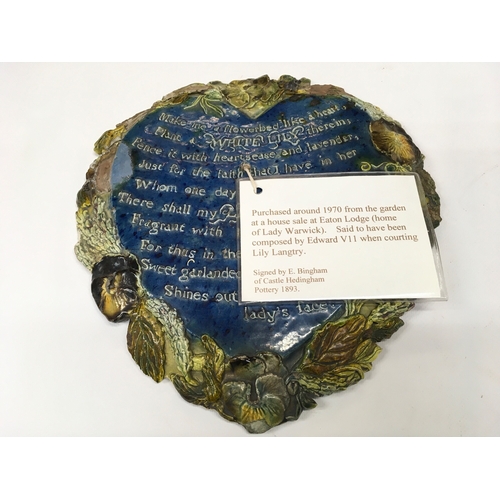 Make me a flowerbed like a heart,
Plant a WHITE LILY therein,
Fence it with heartsease and lavender,
Just for the faith that I have in her
Whom one day
There shall my
Fragrant with
For thus in the
Sweet garlanded
Shines out
lady's face
Purchased around 1970 from the garden
at a house sale at Eaton Lodge (home
of Lady Warwick). Said to have been
composed by Edward V11 when courting
Lily Langtry.
Signed by E. Bingham
of Castle Hedingham
Pottery 1893.